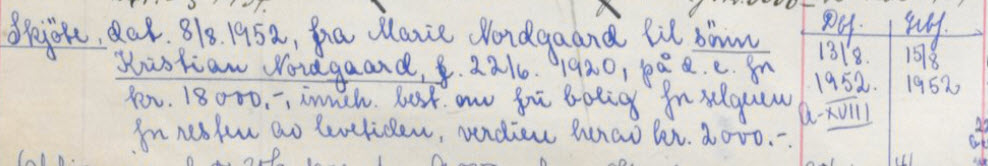 Skjøte, dat. 8/8.1952, fra Marie Nordgaard til sønn
Kristian Nordgaard, f. 22/6. 1920, på d. e. for
kr. 18000,-, inneh. best. om fri bolig for selgeren
for resten av levetiden, verdien herav kr. 2000.-.
Dbf.
13/8.
1952.
A-XVIII
15/8
1952